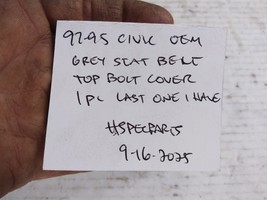 92-95 CIVIC OEM
GREY SEAT BELT
TOP BOLT COVER
1 PC LAST ONE I HAVE
HSPECPARTS
9-16-2025